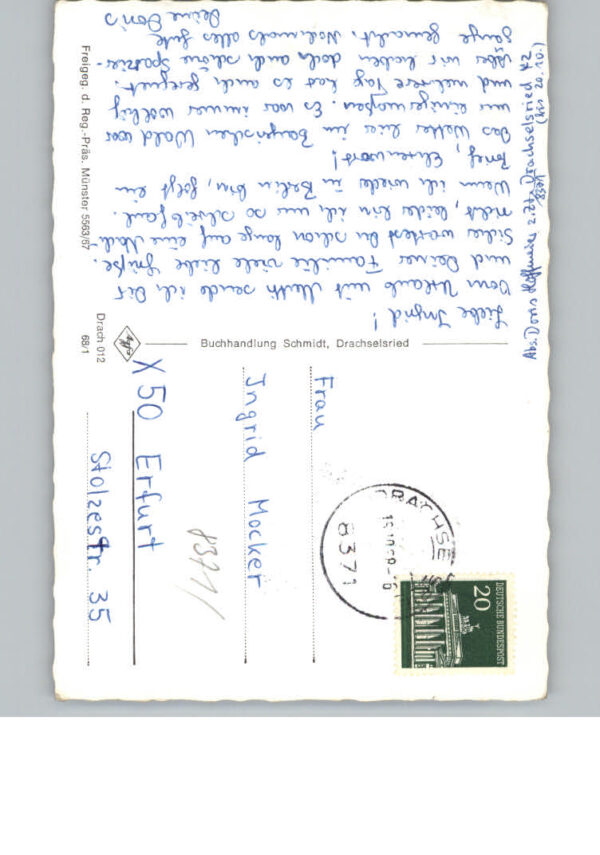 Liebe Ingrid!
Vom Urlaub mit Mutti sende ich Dir
und Deiner Familie viele liebe Grüße.
Sicher wartest Du schon lange auf eine Nach-
richt, leider bin ich nur so schreibfaul.
Wenn ich wieder in Berlin bin, folgt ein
Brief, Ehrenwort!
Das Wetter hier im Bayrischen Wald war
nur einigermaßen. Es war immer wolkig
und mehrere Tage hat es auch geregnet.
Aber wir haben doch auch schöne Spazier-
gänge gemacht. Nochmals alles Gute
Deine Doris
Abs. Doris z.Zt. 8371 Drachselsried 42
(bis 20.10.)
Freigeg. d. Reg.-Präs. Münster 5563/67
Drach 012
68/1
Agfa
Buchhandlung Schmidt, Drachselsried
Frau
Ingrid Mocker
X 50 Erfurt
Stolzestr. 35
8371/
DRACHSE
8371
DEUTSCHE BUNDESPOST
20